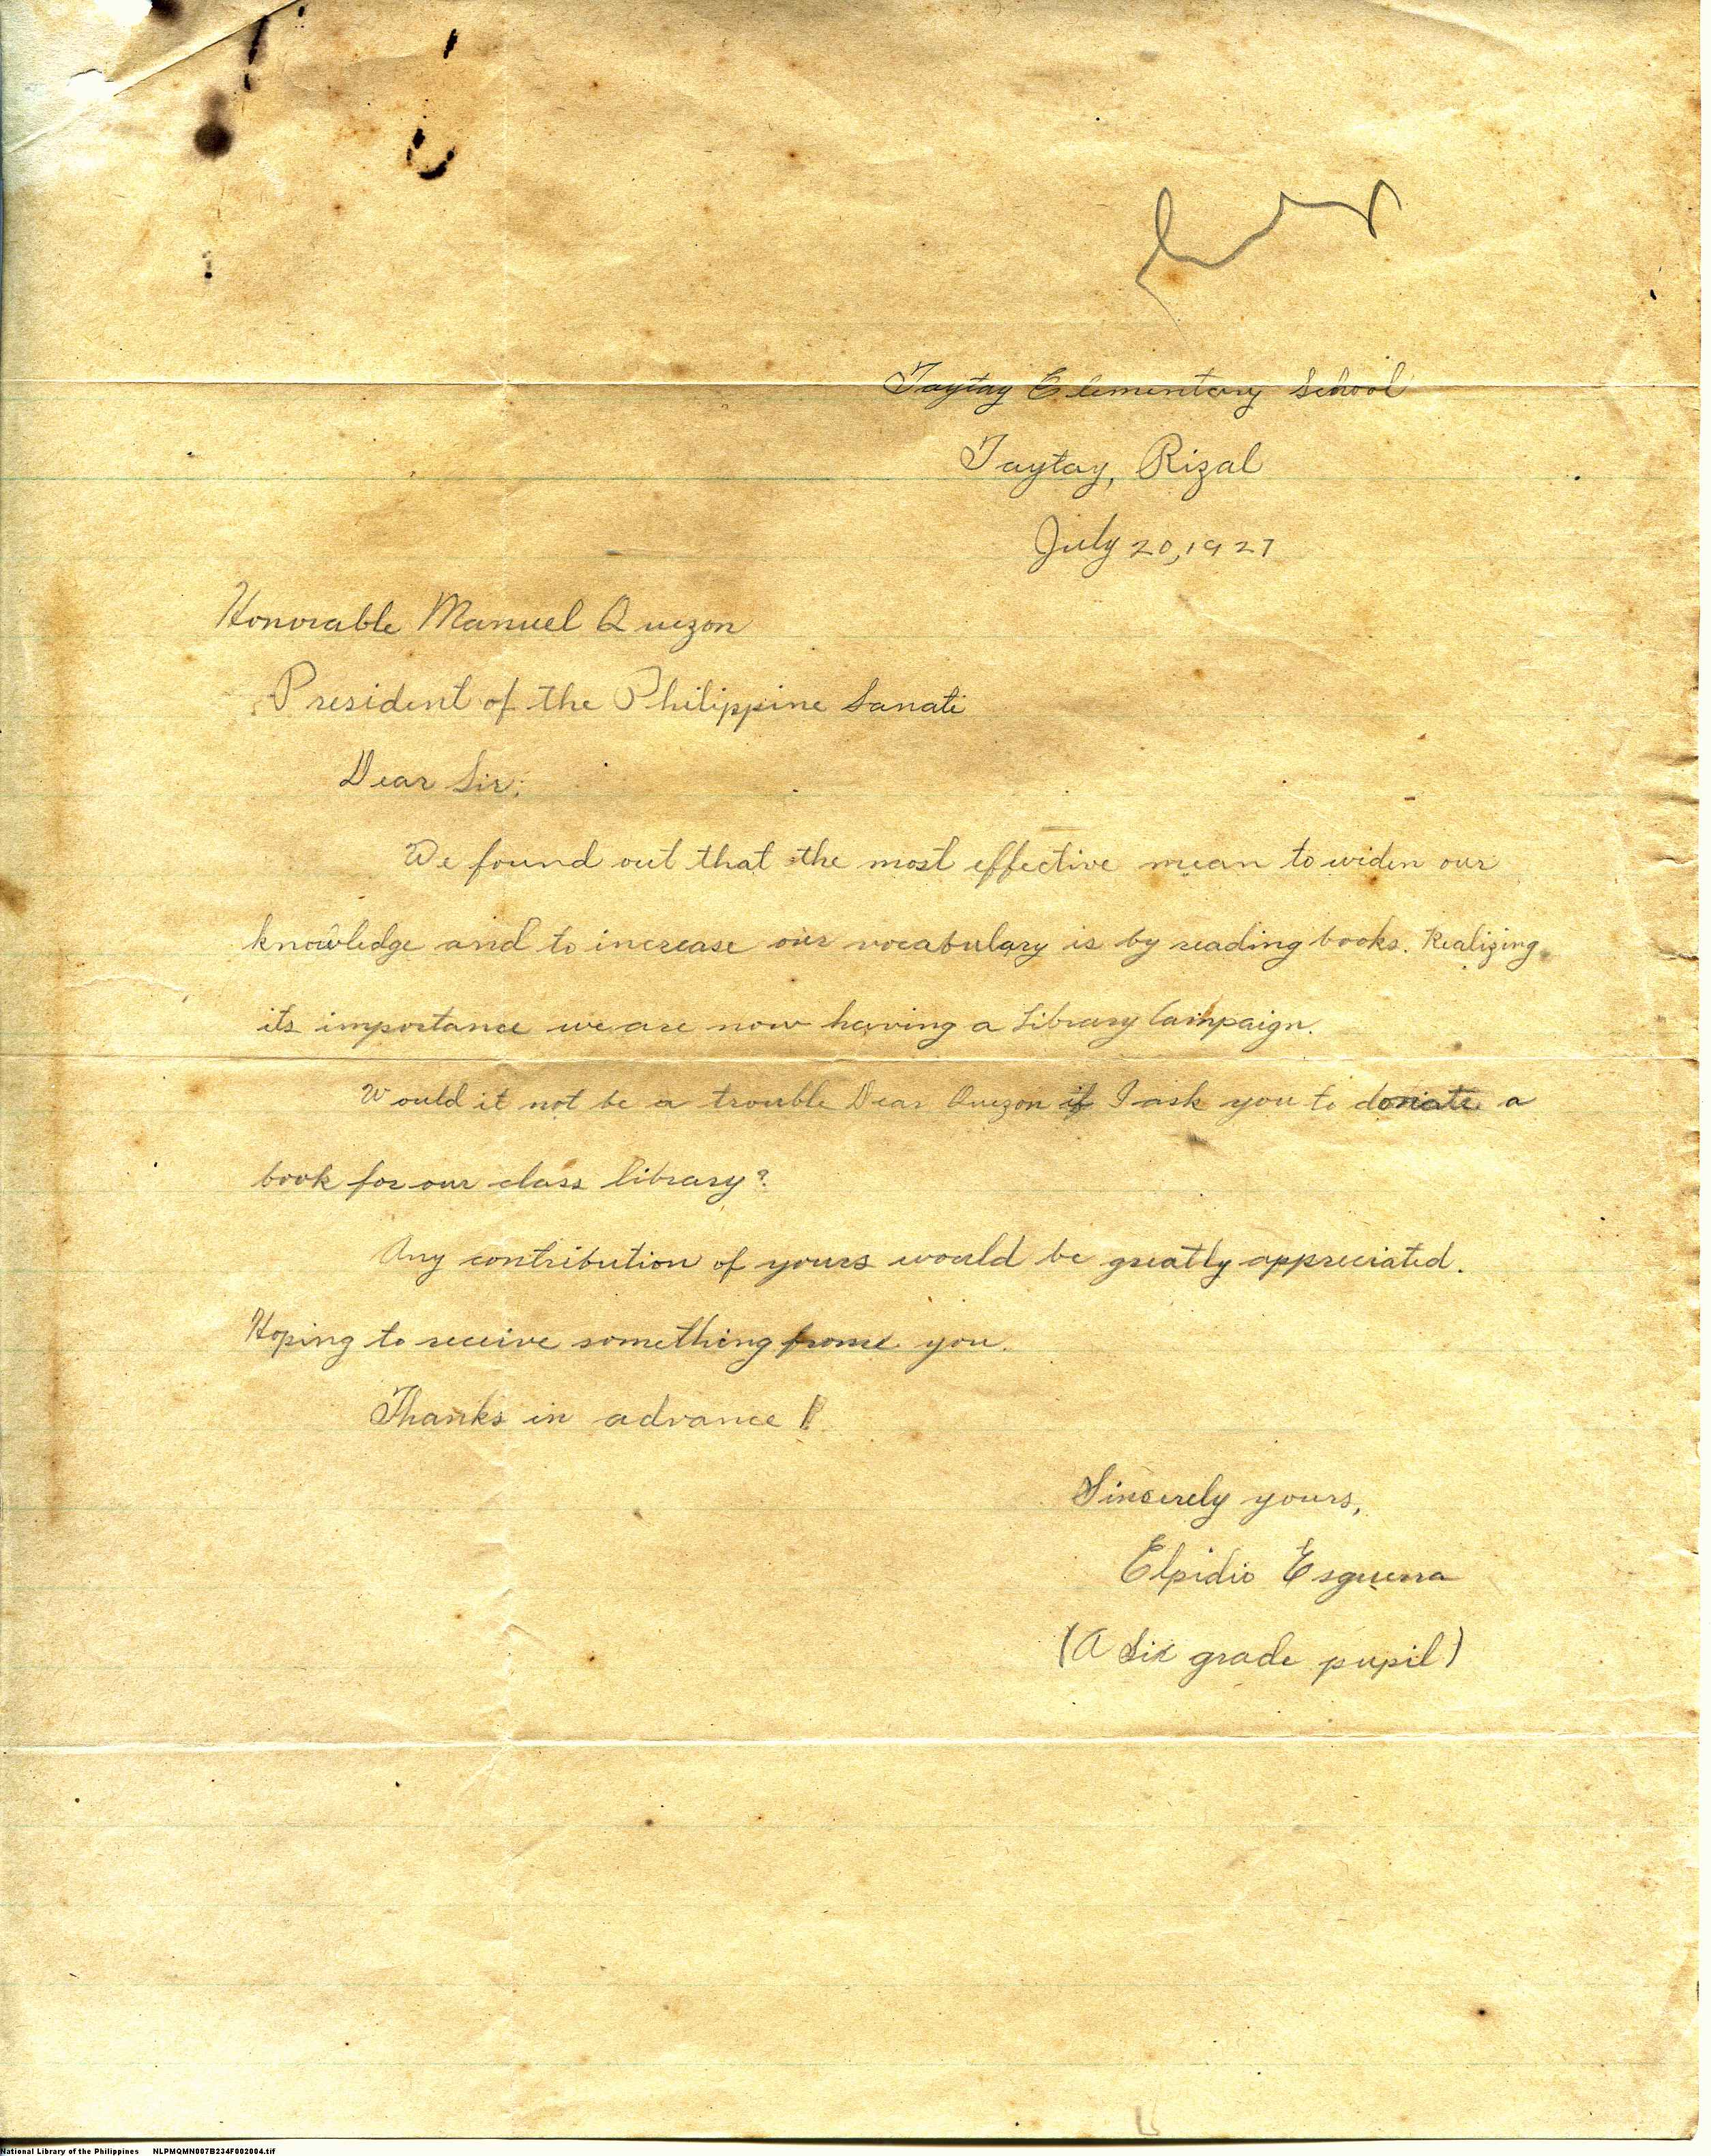 Taytay Elementary School
Taytay, Rizal
July 20, 1927
Honorable Manuel Quezon
President of the Philippine Sanate
Dear Sir:
We found out that the most effective mean to widen our
knowledge and to increase our vocabulary is by reading books. Realizing
its importance we are now having a Library Campaign.
Would it not be a trouble Dear Quezon if I ask you to donate a
book for our class library?
Any contribution of yours would be greatly appreciated.
Hoping to receive something from you.
Thanks in advance!
Sincerely yours,
Elpidio Esguerra
(A Six grade pupil)
National Library of the Philippines NLPMQMN007B234F002004.tif